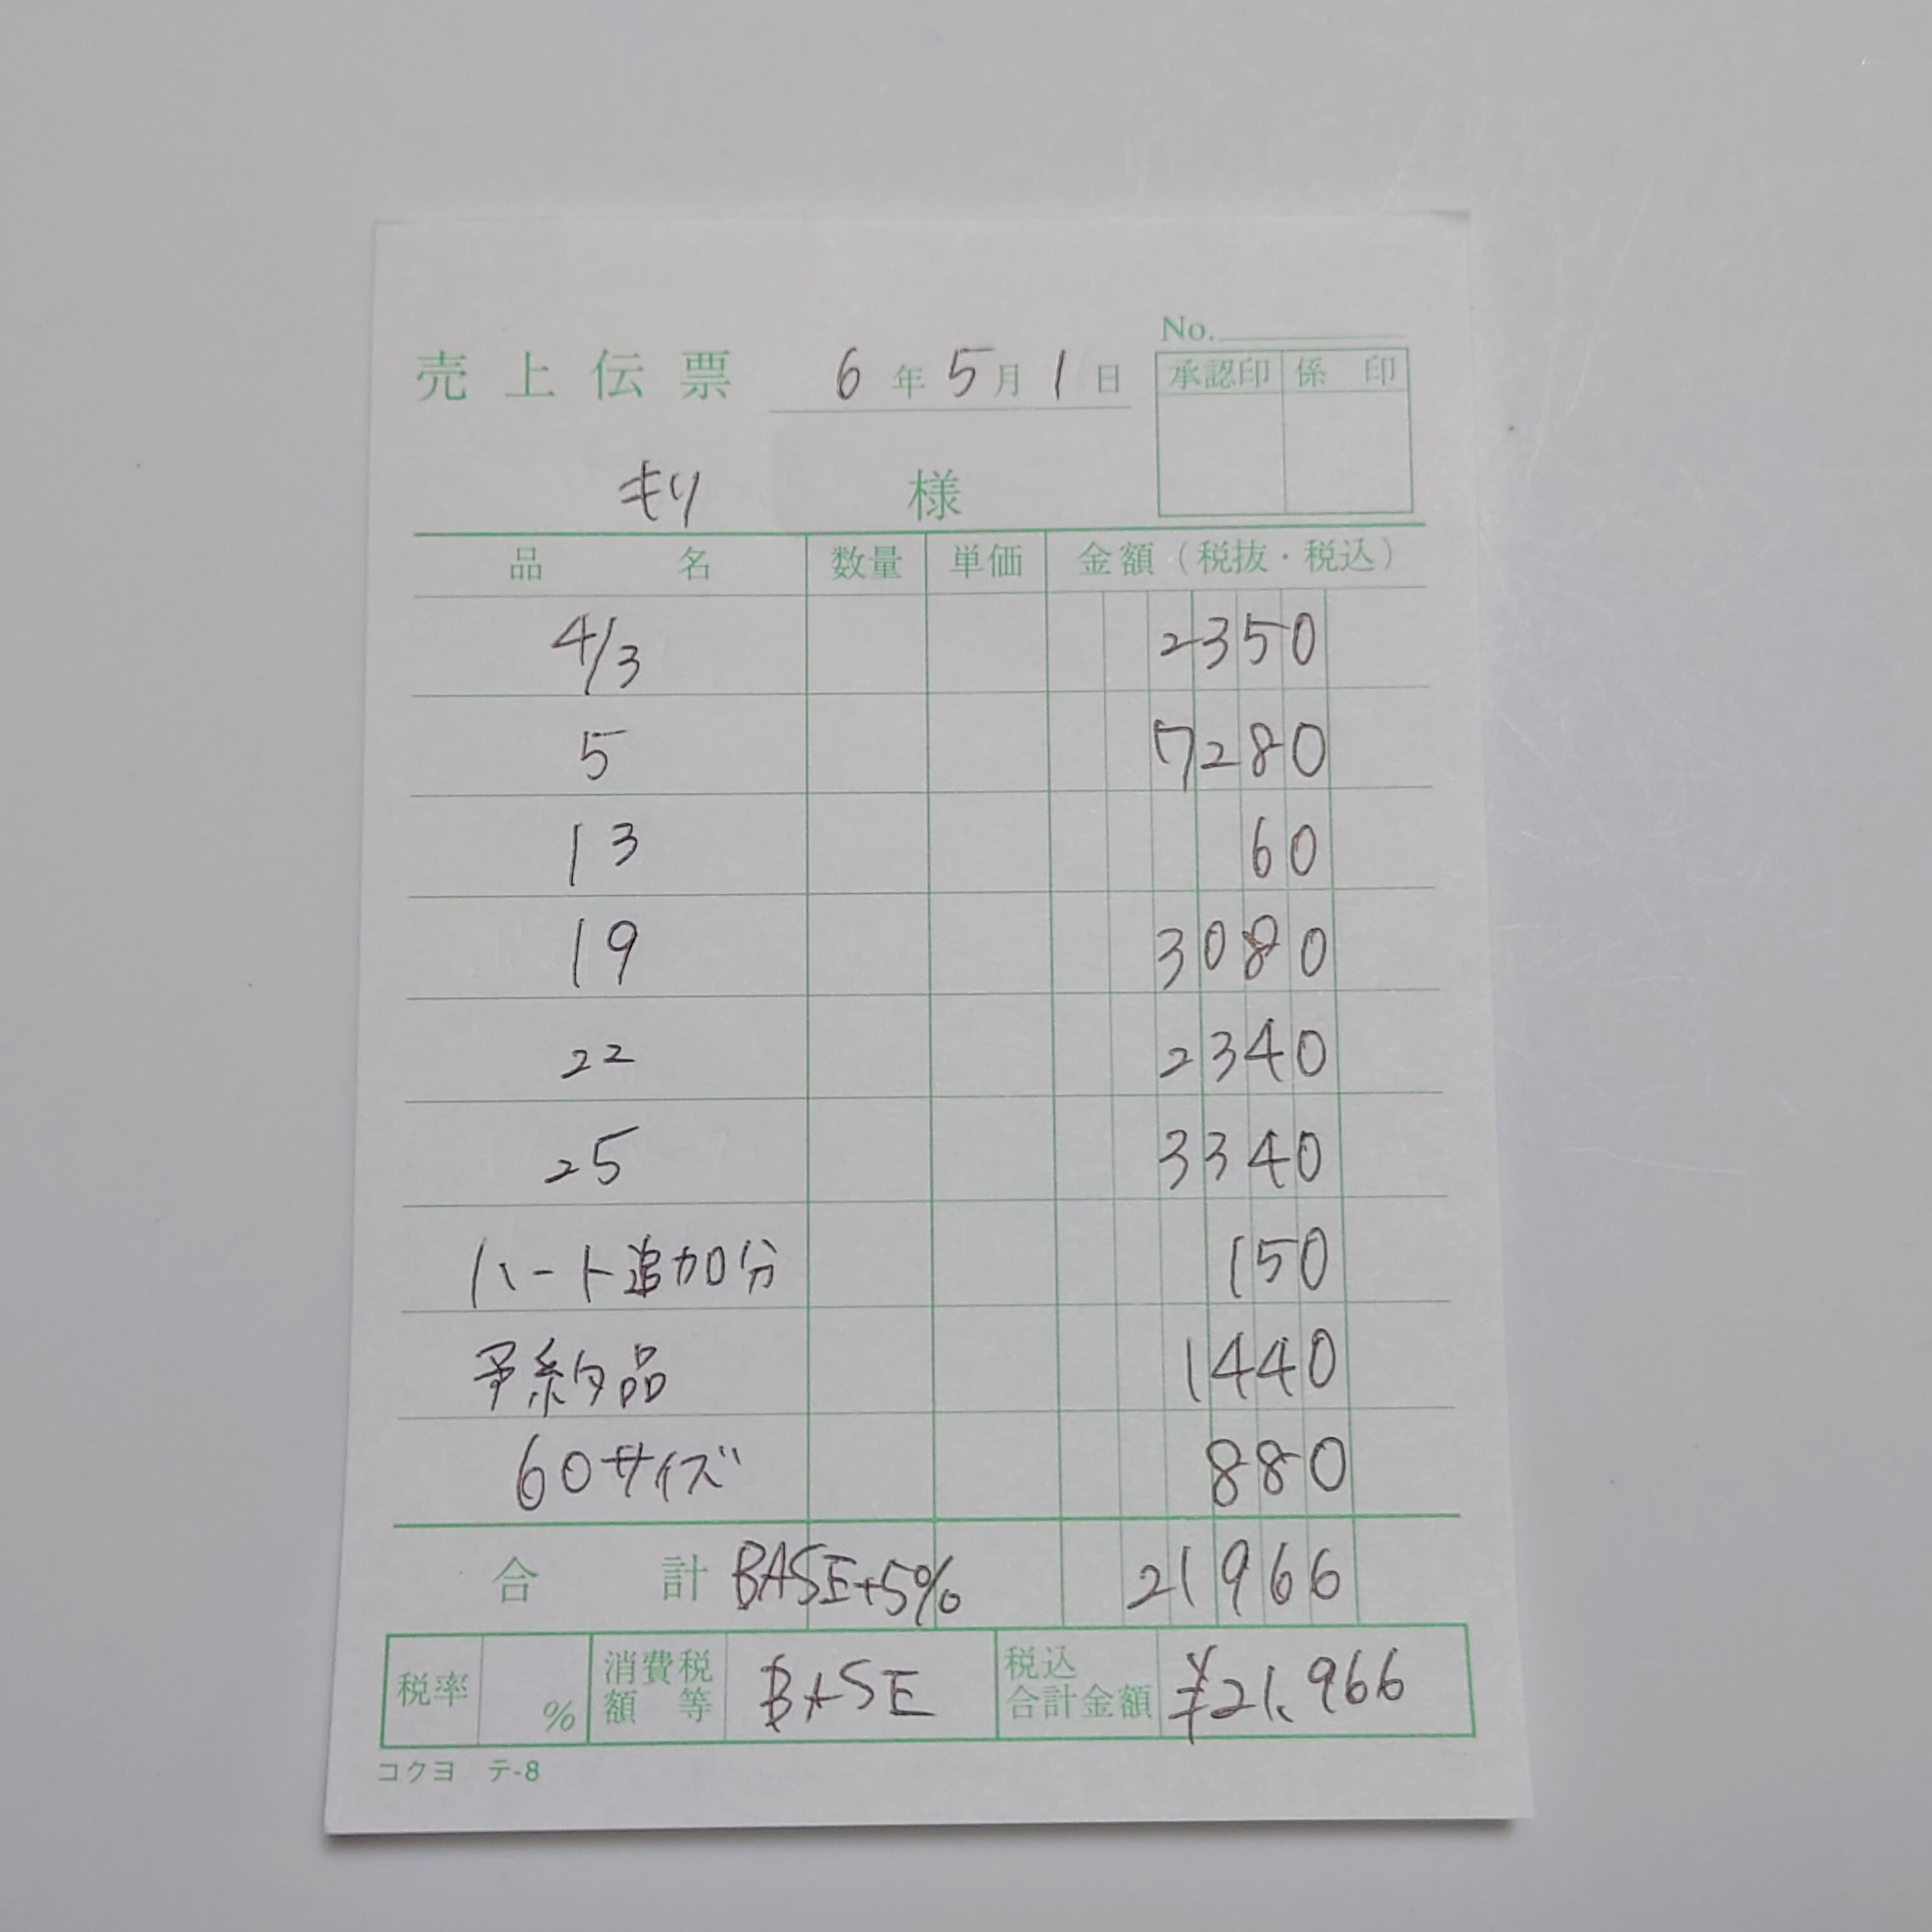 No.
売上伝票 6年5月1日
承認印 係印
キリ 様
品名 数量 単価 金額(税抜・税込)
4/3 2350
5 7280
13 60
19 3080
22 2340
25 3340
ハート追加分 150
予約品 1440
60サイズ 880
合計 BASE+5% 21966
税率 % 消費税額等 BASE 税込合計金額 ¥21,966
コクヨ テ-8